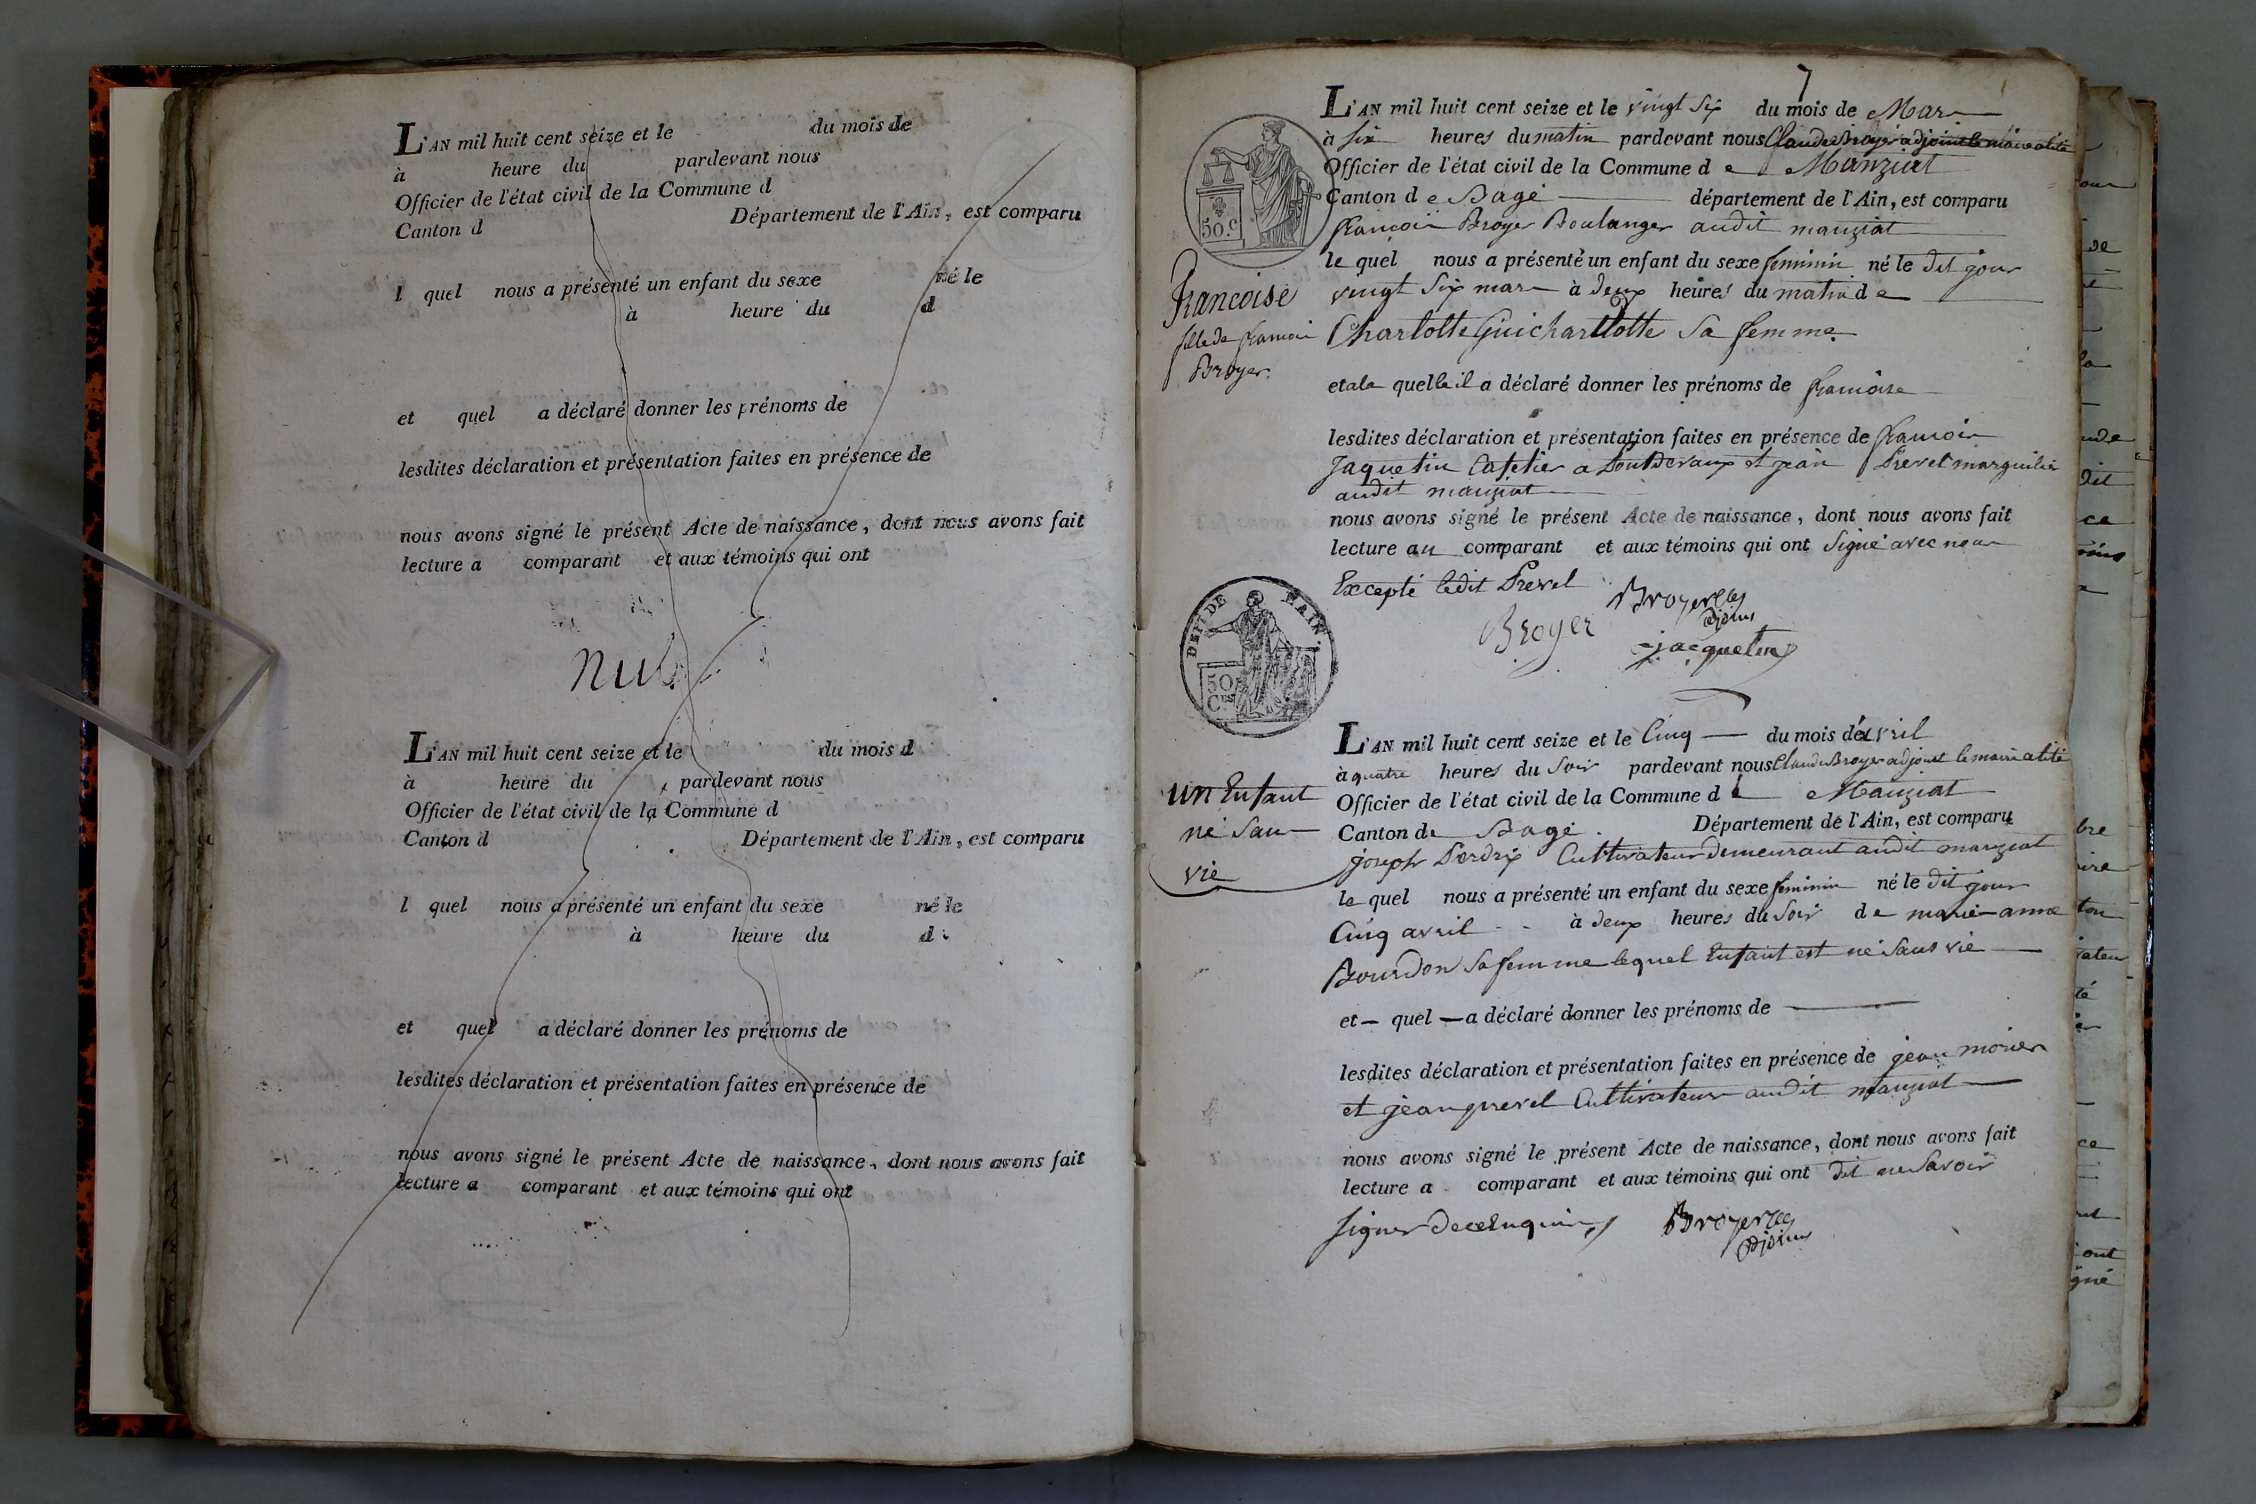 L'AN mil huit cent seize et le du mois de
à heure du pardevant nous
Officier de l'état civil de la Commune d
Canton d Département de l'Ain, est comparu
l quel nous a présenté un enfant du sexe né le
à heure du d
et quel a déclaré donner les prénoms de
lesdites déclaration et présentation faites en présence de
nous avons signé le présent Acte de naissance, dont nous avons fait
lecture a comparant et aux témoins qui ont
nul
L'AN mil huit cent seize et le du mois d
à heure du pardevant nous
Officier de l'état civil de la Commune d
Canton d Département de l'Ain, est comparu
l quel nous a présenté un enfant du sexe né le
à heure du d
et quel a déclaré donner les prénoms de
lesdites déclaration et présentation faites en présence de
nous avons signé le présent Acte de naissance, dont nous avons fait
lecture a comparant et aux témoins qui ont
7
L'AN mil huit cent seize et le vingt six du mois de Mars
à six heures du matin pardevant nous Claude Broyer adjoint le maire alité
Officier de l'état civil de la Commune de Manziat
Canton de Bagé département de l'Ain, est comparu
françois Broyer Boulanger audit manziat
le quel nous a présenté un enfant du sexe feminin né le dit jour
vingt six mars à deux heures du matin de
Charlotte Guichardotte sa femme
et a la quelle il a déclaré donner les prénoms de françoise
lesdites déclaration et présentation faites en présence de françois
Jaquetin à Pontdevaux et jean Prevel marguilier
audit manziat
nous avons signé le présent Acte de naissance, dont nous avons fait
lecture au comparant et aux témoins qui ont signé avec nous
Excepté ledit Prevel
Broyer
Broyer
adjoint
jacquetin
50.c
Francoise
fille de françois
Broyer
DEPT DE L'AIN.
50
Ces
L'AN mil huit cent seize et le Cinq du mois d'avril
à quatre heures du soir pardevant nous Claude Broyer adjoint le maire alité
Officier de l'état civil de la Commune de Manziat
Canton de Bagé Département de l'Ain, est comparu
joseph Perdrix Cultivateur demeurant audit manziat
le quel nous a présenté un enfant du sexe feminin né le dit jour
Cinq avril à deux heures du soir de marie anne
Bourdon sa femme lequel Enfant est né sans vie
et quel a déclaré donner les prénoms de
lesdites déclaration et présentation faites en présence de jean morier
et jean prevel Cultivateurs audit manziat
nous avons signé le présent Acte de naissance, dont nous avons fait
lecture a comparant et aux témoins qui ont dit ne savoir
signer de ce Enquis
Broyer
adjoint
un Enfant
né sans
vie